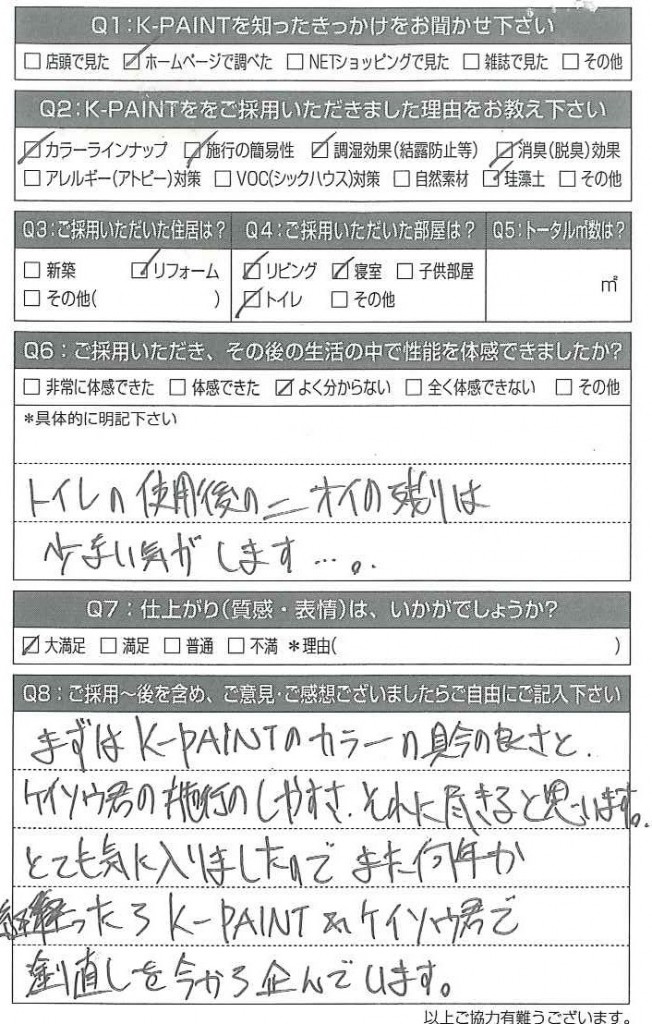 Q1:K-PAINTを知ったきっかけをお聞かせ下さい
□店頭で見た ☑ホームページで調べた □NETショッピングで見た □雑誌で見た □その他
Q2:K-PAINTををご採用いただきました理由をお教え下さい
☑カラーラインナップ ☑施行の簡易性 ☑調湿効果(結露防止等) ☑消臭(脱臭)効果
□アレルギー(アトピー)対策 □VOC(シックハウス)対策 □自然素材 ☑珪藻土 □その他
Q3:ご採用いただいた住居は? Q4:ご採用いただいた部屋は? Q5:トータル㎡数は?
□新築 ☑リフォーム ☑リビング ☑寝室 □子供部屋
□その他( ) ☑トイレ □その他 ㎡
Q6:ご採用いただき、その後の生活の中で性能を体感できましたか?
□非常に体感できた □体感できた ☑よく分からない □全く体感できない □その他
*具体的に明記下さい
トイレの使用後のニオイの残りは
少ない気がします…。
Q7:仕上がり(質感・表情)は、いかがでしょうか?
☑大満足 □満足 □普通 □不満 *理由( )
Q8:ご採用〜後を含め、ご意見・ご感想ございましたらご自由にご記入下さい
まずはK-PAINTのカラーの具合の良さと、
ケイソウ君の施行のしやすさ、それに尽きると思います。
とても気に入りましたので また何年か
経ったら K-PAINT & ケイソウ君で
塗り直しを今から企んでいます。
以上ご協力有難うございます。